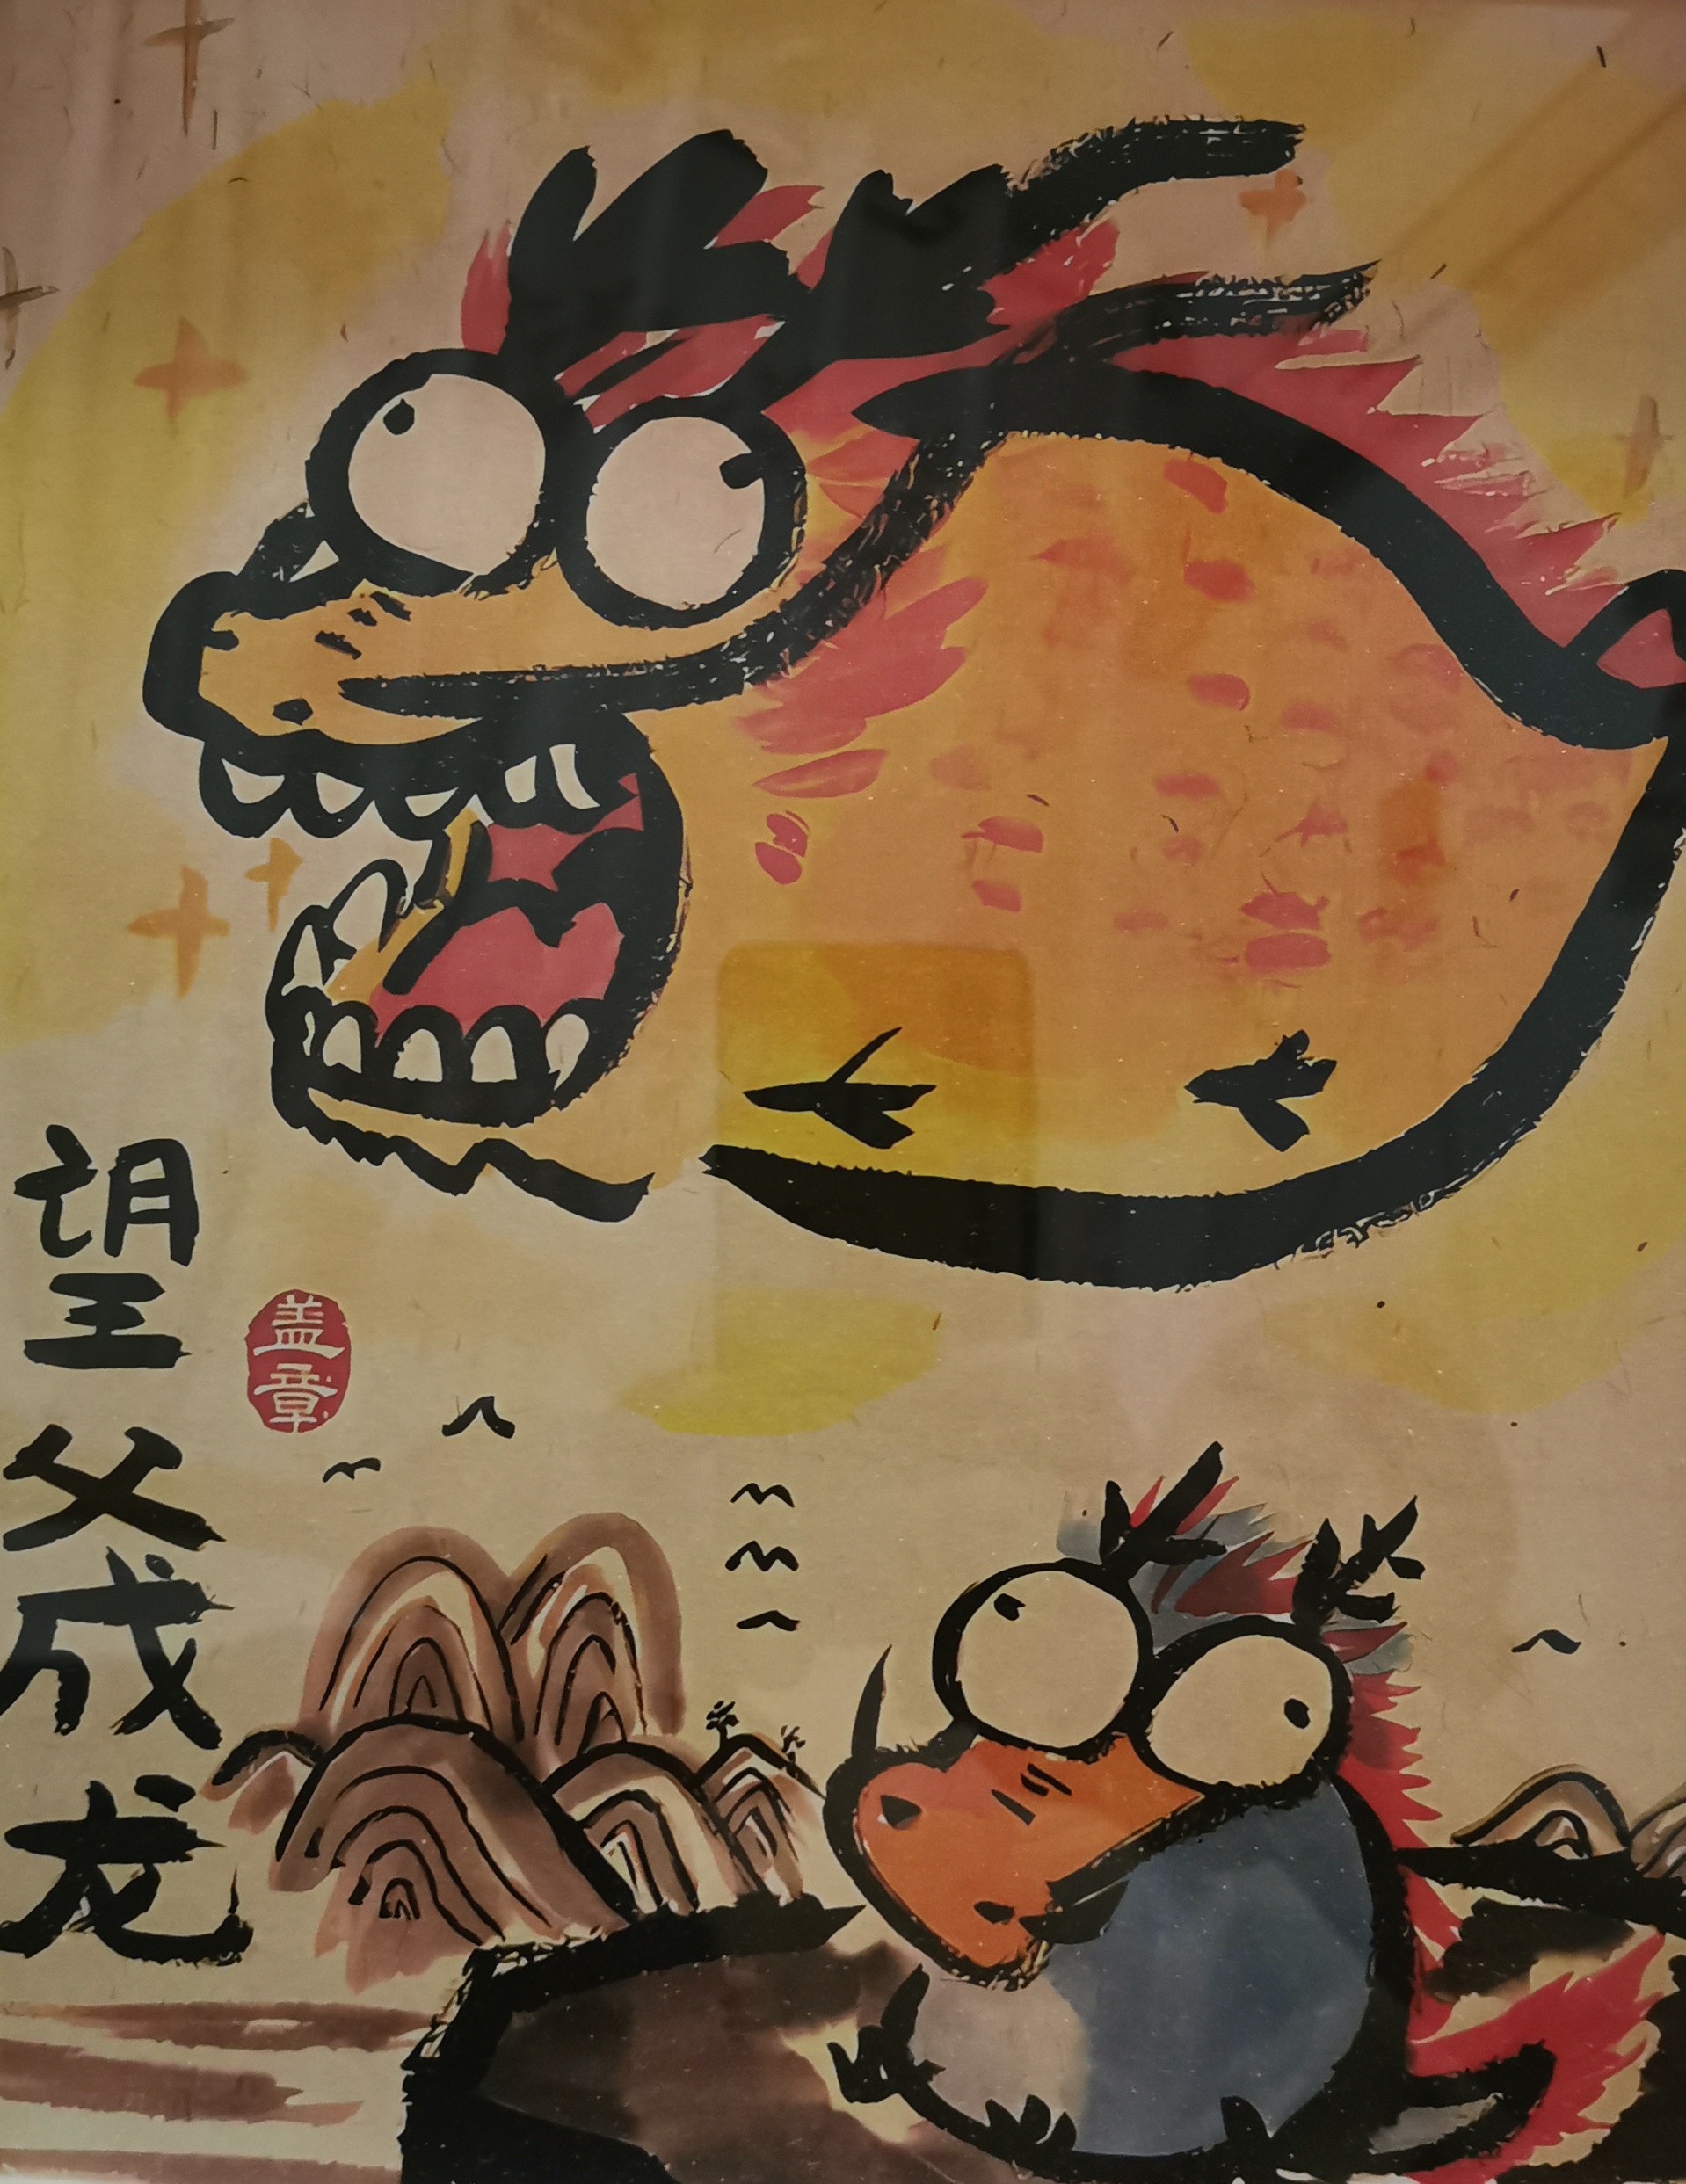 望父成龙
盖章